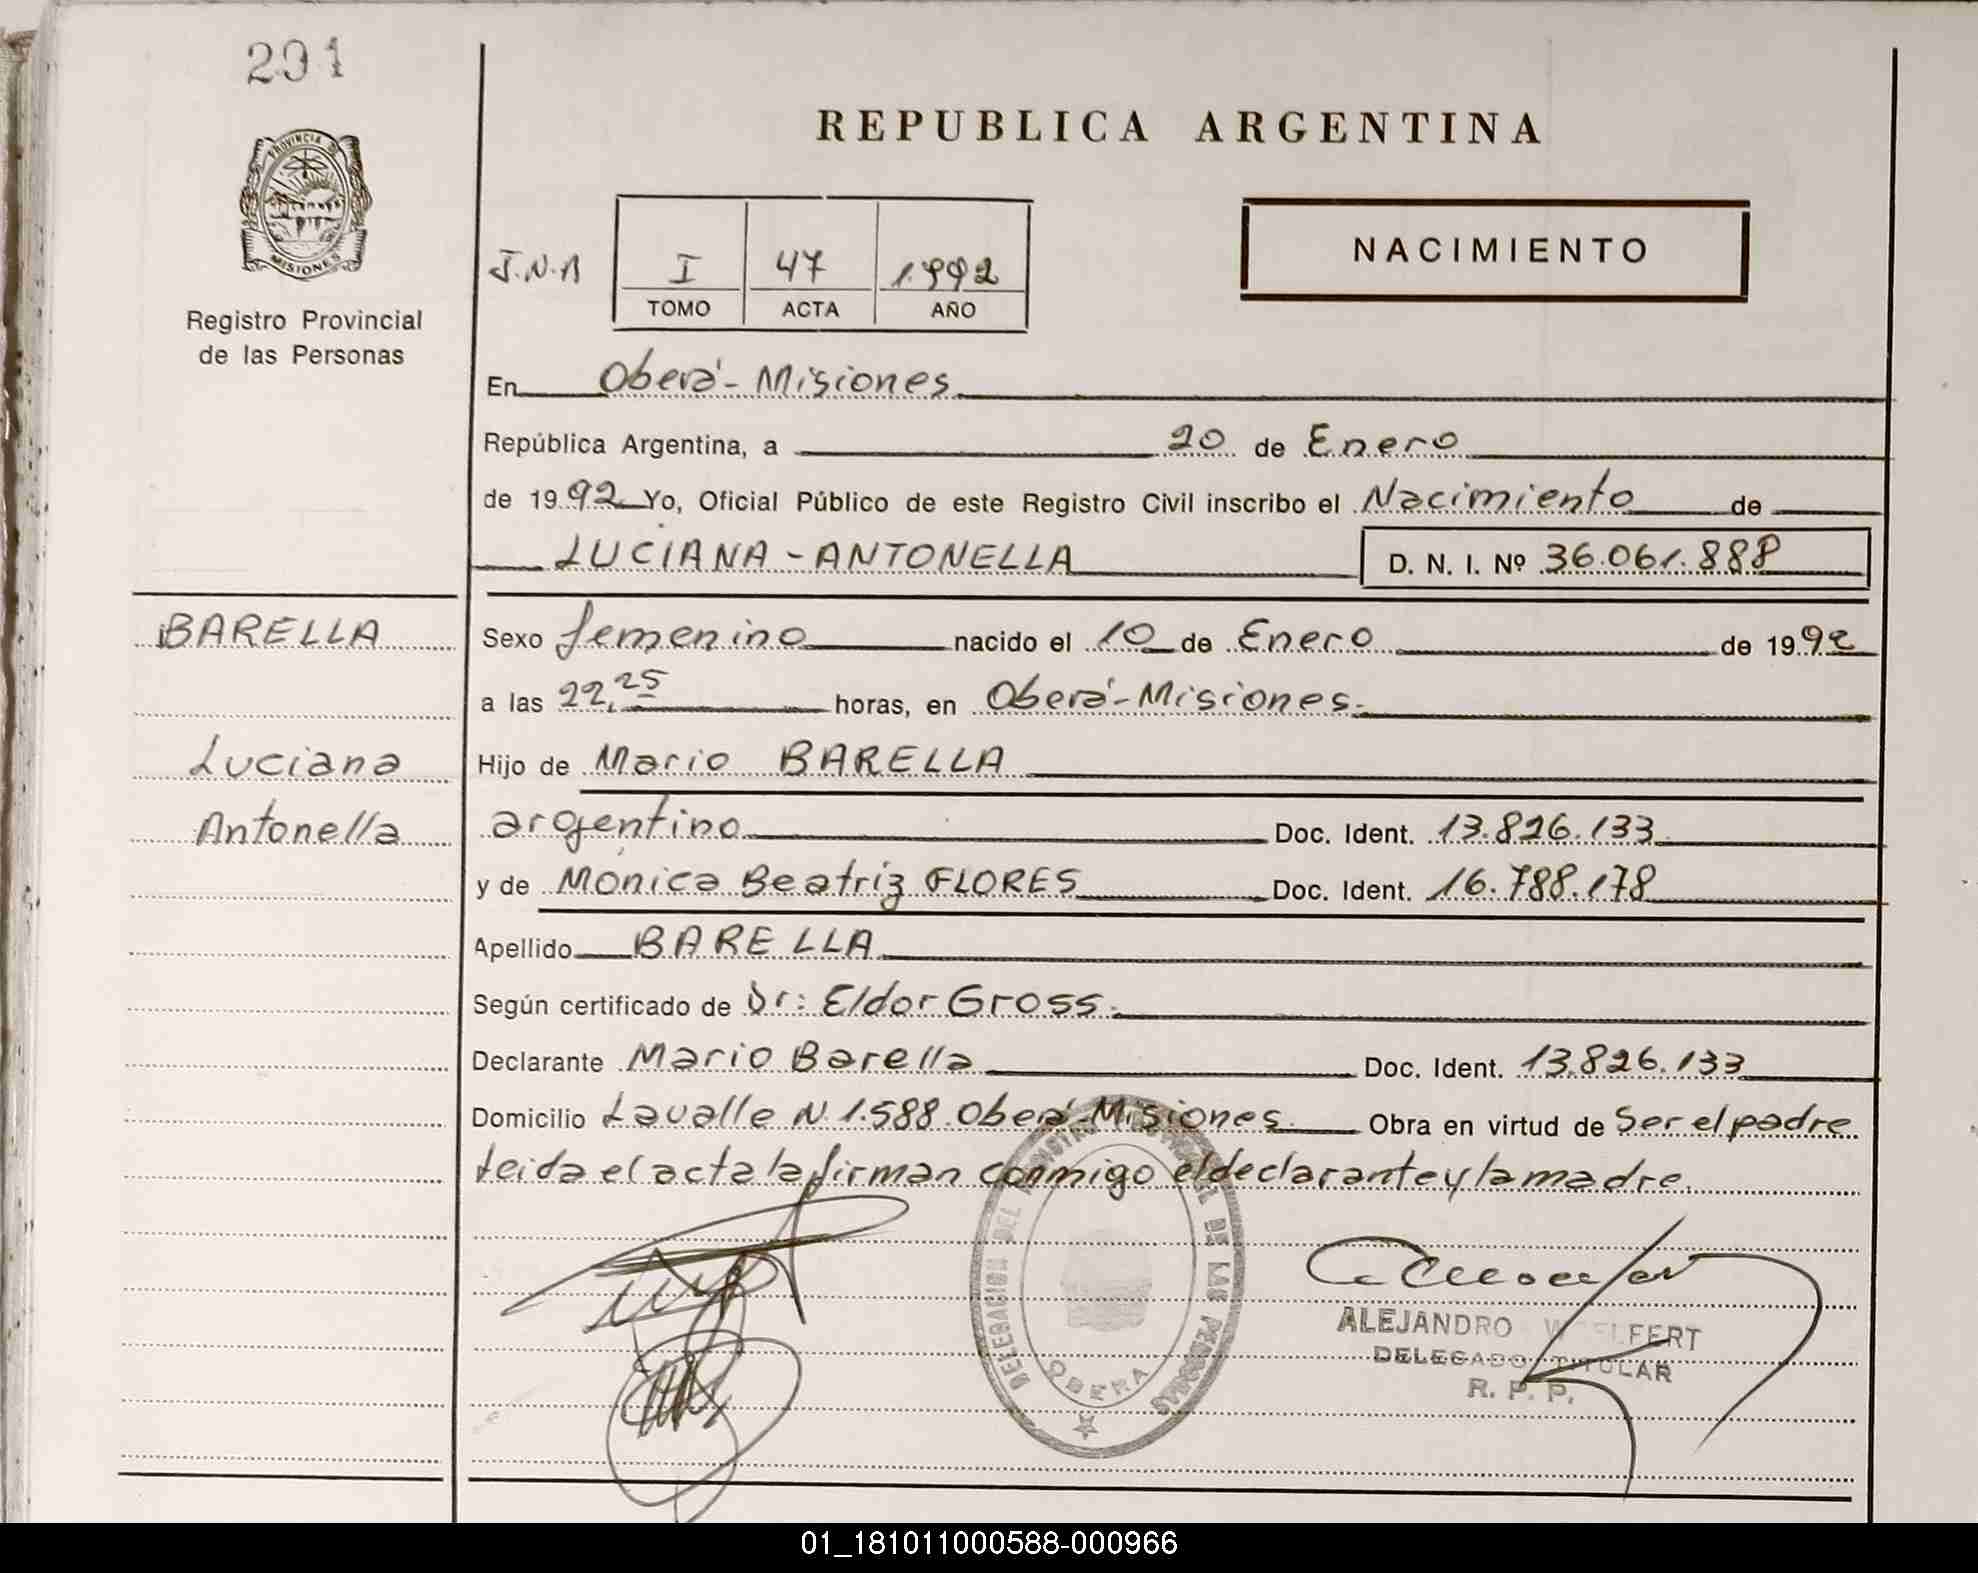 291
PROVINCIA DE
MISIONES
Registro Provincial
de las Personas
REPUBLICA ARGENTINA
NACIMIENTO
I 47 1.992
TOMO ACTA AÑO
En Oberá - Misiones
República Argentina, a 20 de Enero
de 1992 Yo, Oficial Público de este Registro Civil inscribo el Nacimiento de
LUCIANA - ANTONELLA D. N. I. Nº 36.061.888
BARELLA
Luciana
Antonella
Sexo femenino nacido el 10 de Enero de 1992
a las 22,25 horas, en Oberá - Misiones.
Hijo de Mario BARELLA
argentino Doc. Ident. 13.826.133
y de Mónica Beatriz FLORES Doc. Ident. 16.788.178
Apellido BARELLA
Según certificado de Dr: Eldor Gross.
Declarante Mario Barella Doc. Ident. 13.826.133
Domicilio Lavalle N 1.588 Oberá - Misiones Obra en virtud de Ser el padre
Leida el acta la firman conmigo el declarante y la madre.
DELEGACION DEL REGISTRO PROVINCIAL DE LAS PERSONAS
OBERA
ALEJANDRO WOELFERT
DELEGADO TITULAR
R. P. P.
01_181011000588-000966